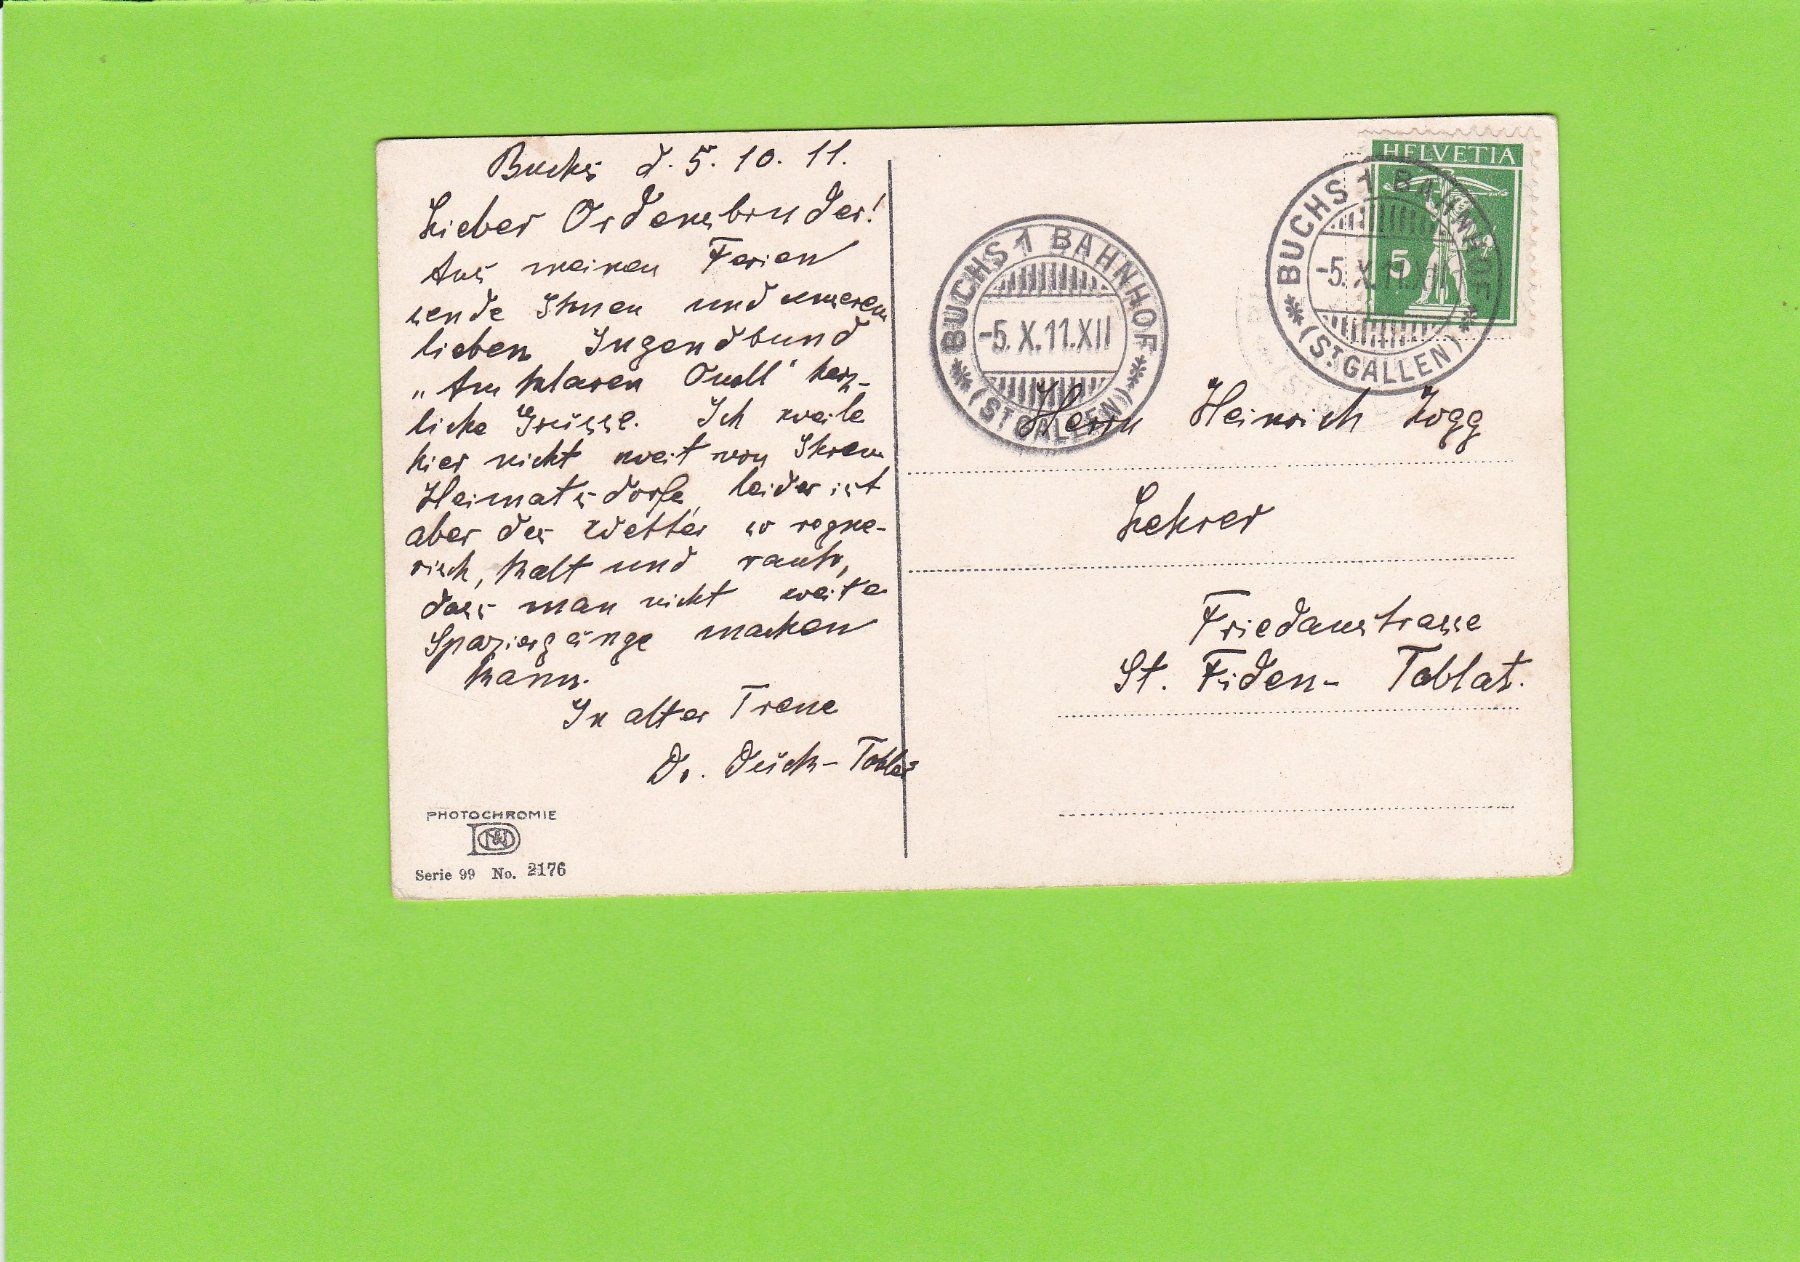 Buchs d. 5. 10. 11.
Lieber Ordensbruder!
Aus meinen Ferien
sende Ihnen und unserem
lieben Jugendbund
„Am klaren Quell" herz-
liche Grüsse. Ich weile
hier nicht weit von Ihrem
Heimatsdorfe, leider ist
aber das Wetter so regne-
risch, kalt und rauh,
dass man nicht weite
Spaziergänge machen
kann.
In alter Treue
Dr. -Tobler
PHOTOCHROMIE
Serie 99 No. 2176
HELVETIA
5
BUCHS 1 BAHNHOF
-5.X.11.XII
(ST. GALLEN)
BUCHS 1 BAHNHOF
-5.X.11.XII
(ST. GALLEN)
Herrn Heinrich Zogg
Lehrer
Friedaustrasse
St. Fiden- Tablat.